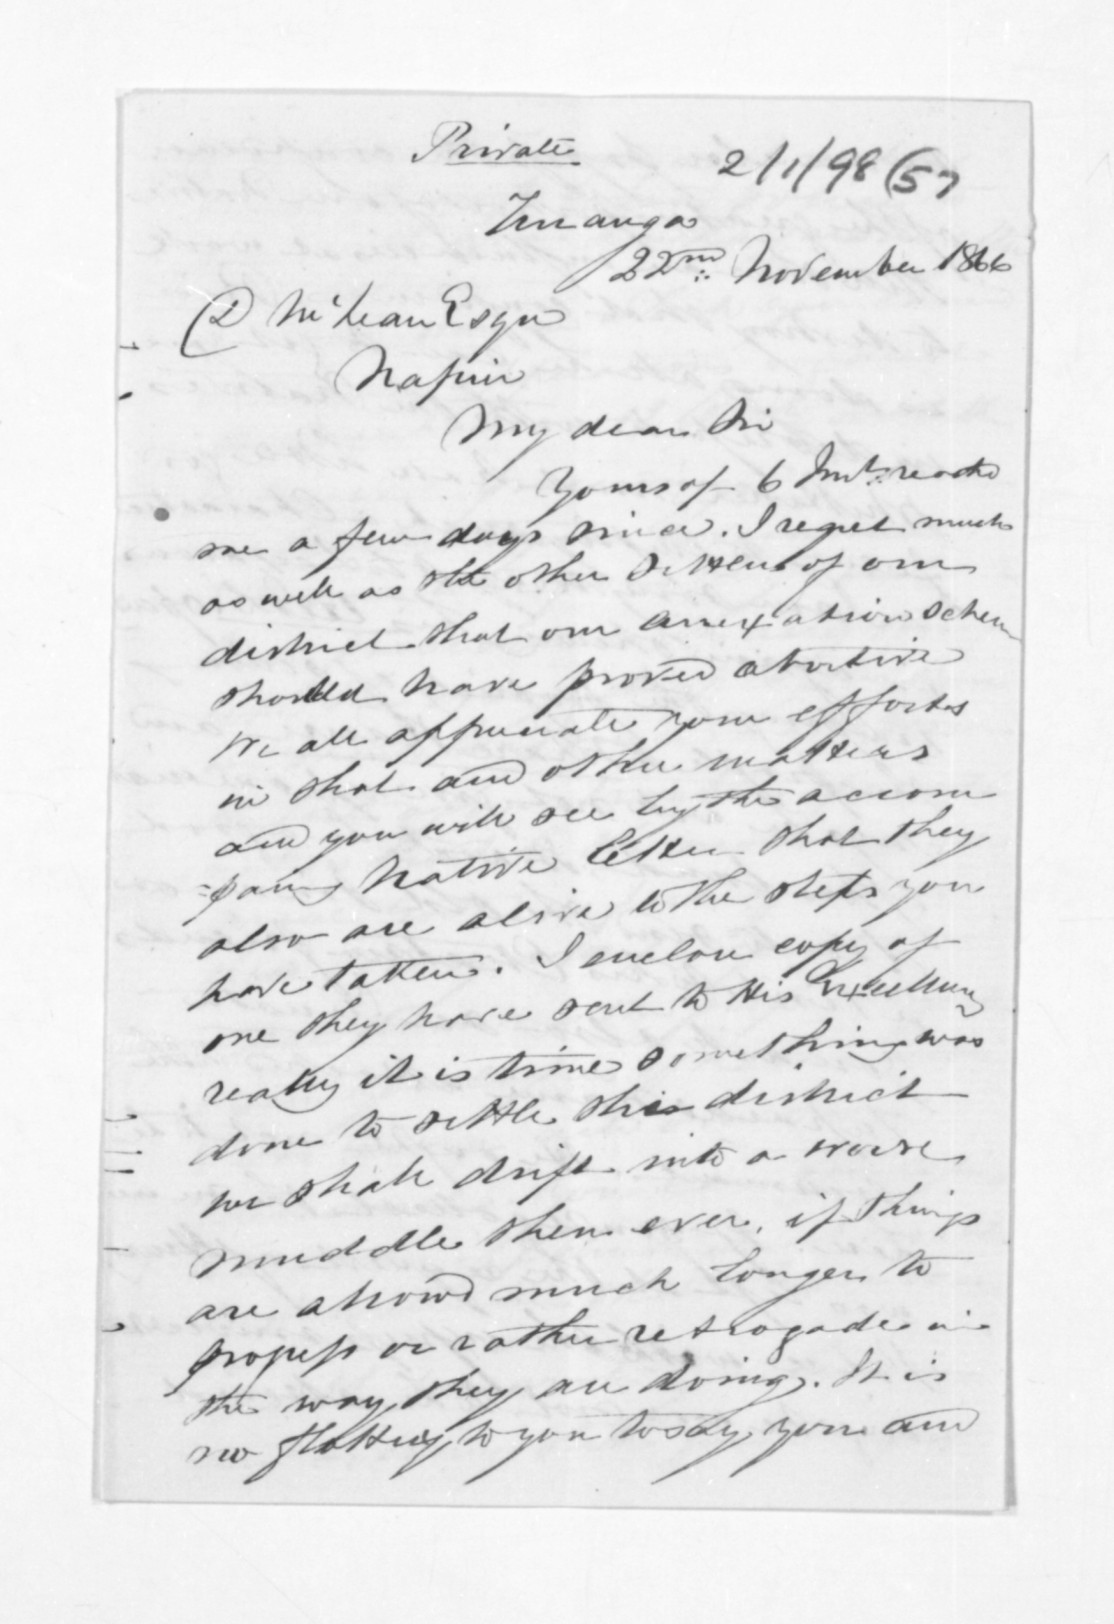 Private
2/1/98 (57
Turanga
22nd November 1866
D McLean Esqr
Napier
My dear Sir
Yours of 6 Inst: reachd
me a few days since. I regret much
as well as the other Settlers of our
district that our annexation scheme
should have proved abortive
We all appreciate your efforts
in that and other matters
and you will see by the accom
=panyg Native letter that they
also are alive to the steps you
have taken. I enclose copy of
one they have sent to His Excellency
really it is time something was
done to settle this district
we shall drift into a worse
muddle then ever, if things
are allowd much longer to
progress or rather retrogade in
the way they are doing. It is
no flattery to you to say you and